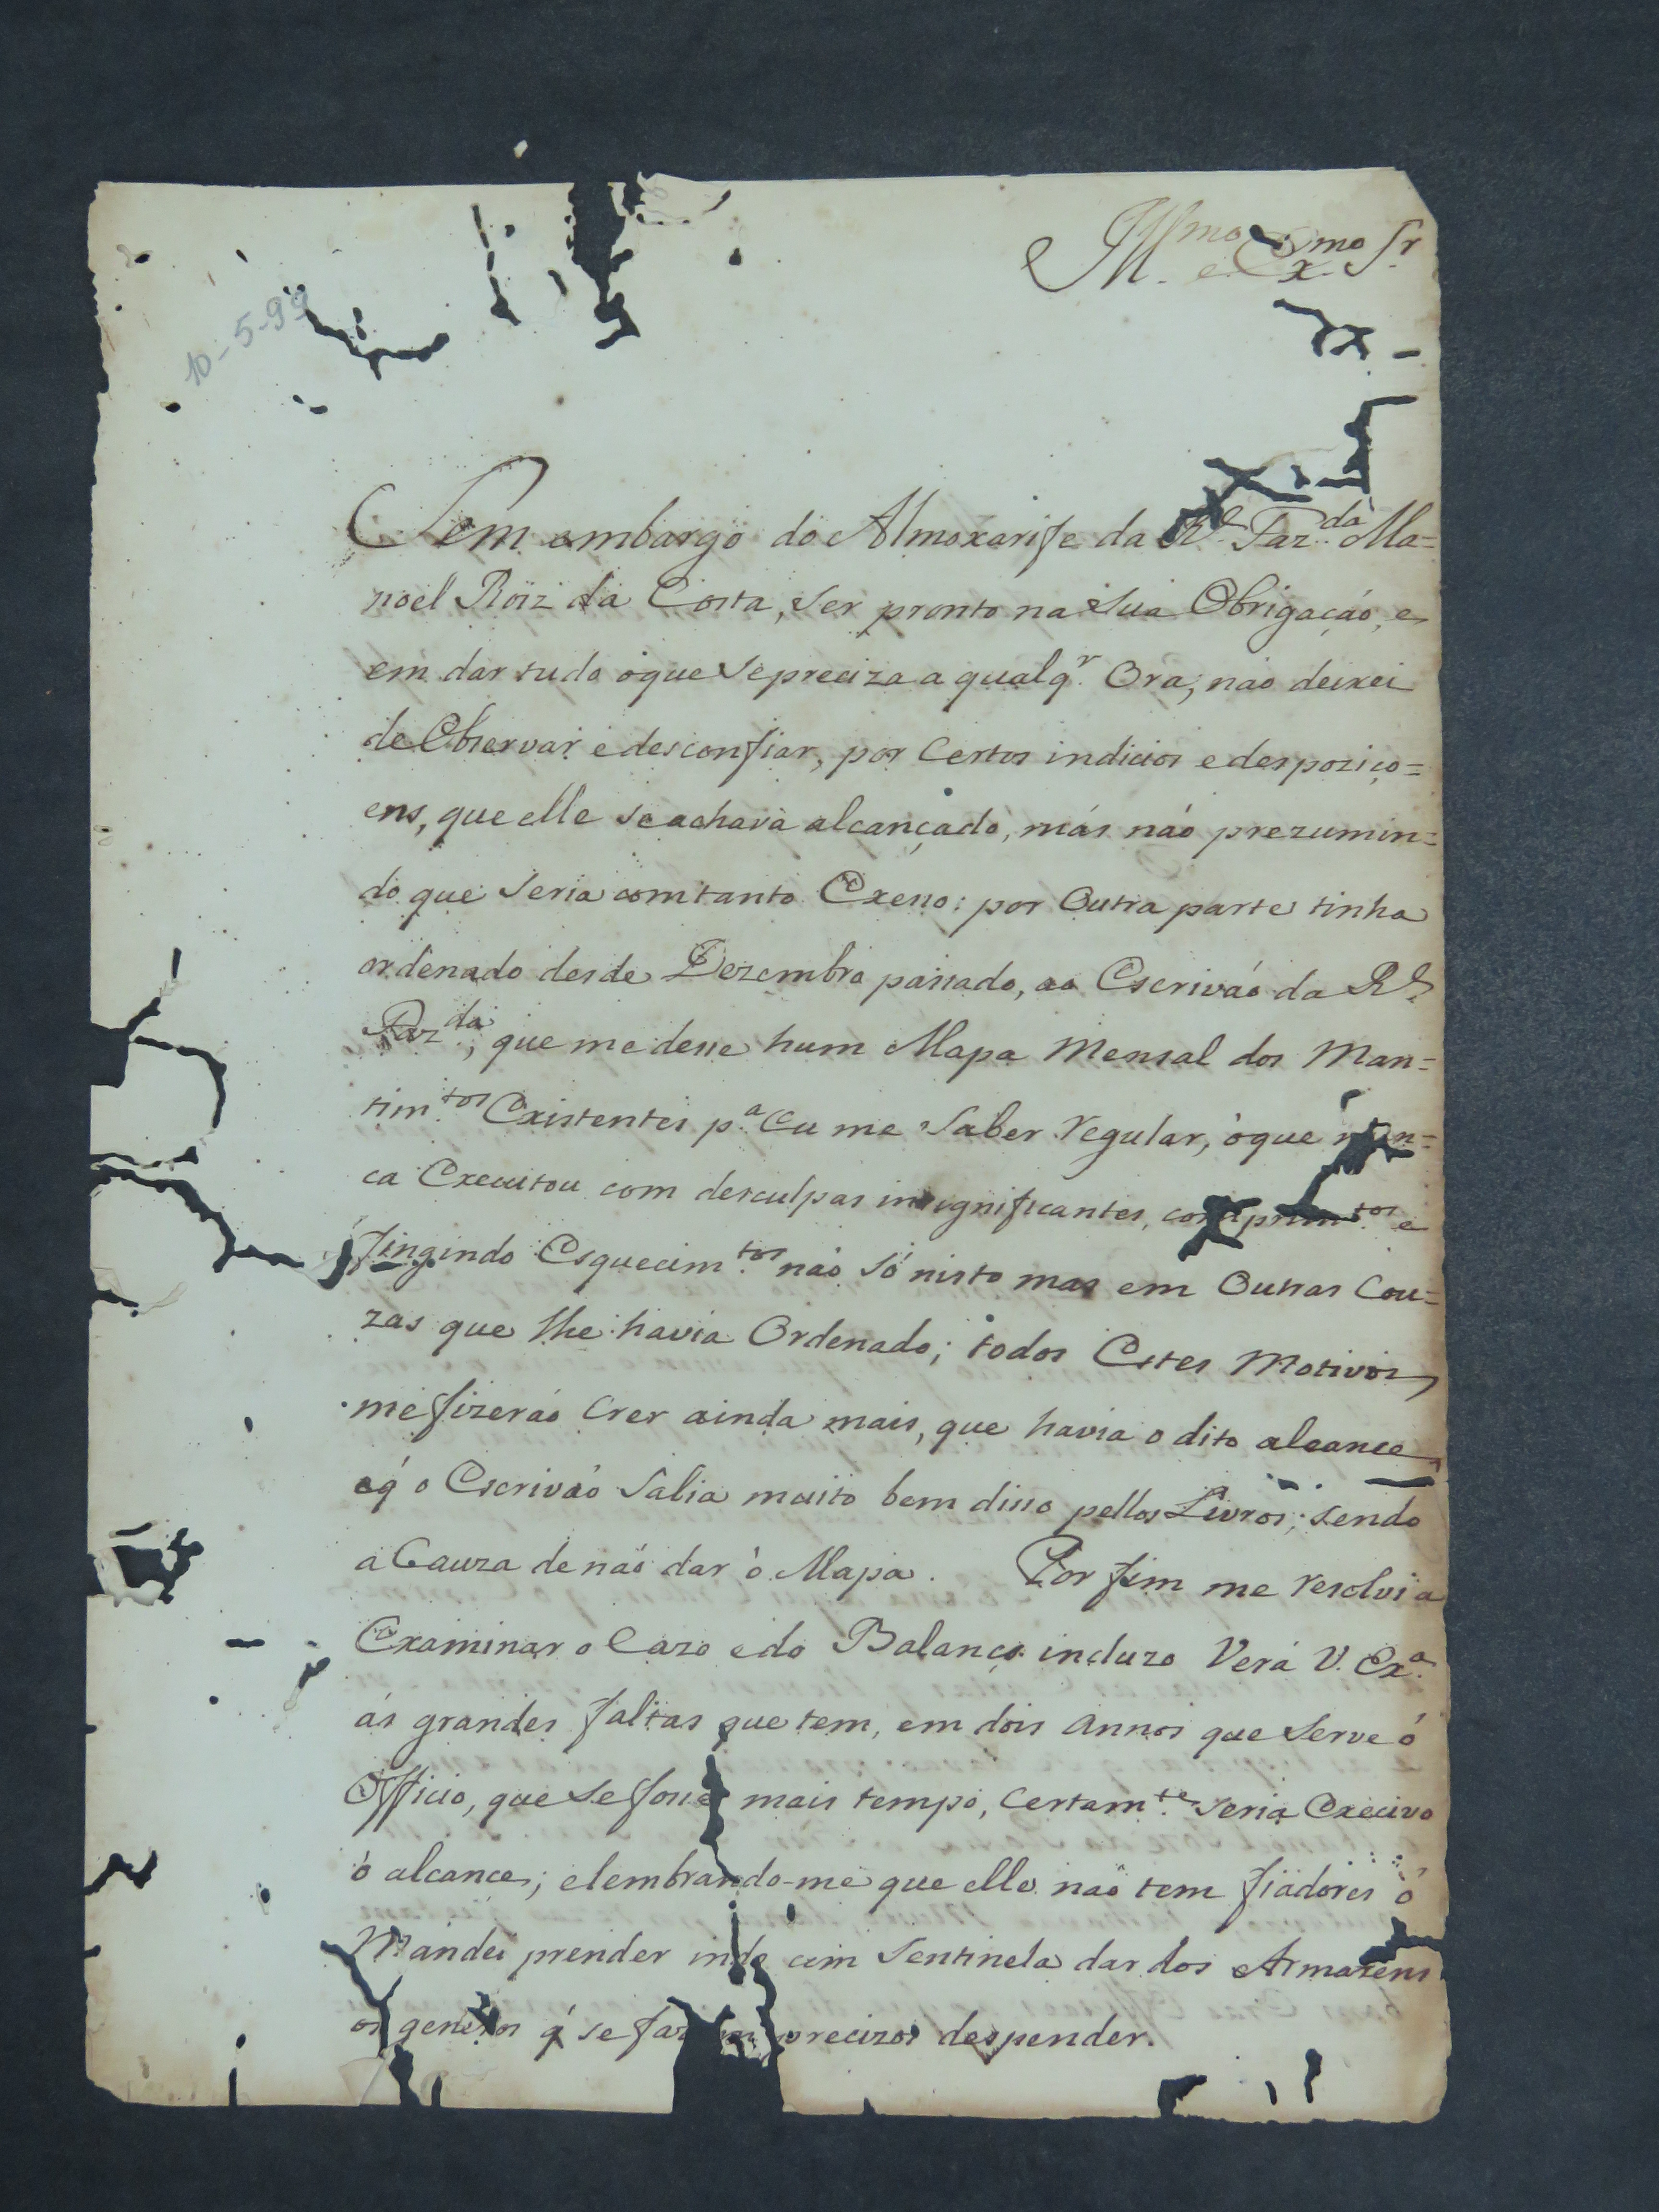 Ill.mo e Ex.mo Sr.
10-5-99
Sem embargo do Almoxarife da R.l Faz.da Ma=
noel Roiz da Costa, ser pronto na sua Obrigação, e
em dar tudo oque sepreciza a qualq.r Ora, não deixei
de Observar e desconfiar, por Certos indicios e despoziço=
ens, que elle seachavà alcançado, màs não prezumin=
do que Seria com tanto Excesso: por Outra parte tinha
ordenado desde Dezembro passado, ao Escrivão da R.l
Faz.da, que me desse hum Mapa Mensal dos Man=
tim.tos Existentes p.a Eu me Saber regular, òque nun=
ca Executou com desculpas insignificantes, comprim.tos e
fingindo Esquecim.tos não Só nisto mas em Outras Cou=
zas que lhe havia Ordenado; todos Estes Motivos
mefizerão Crer ainda mais, que havia o dito alcance
eq' o Escrivão Sabia muito bem disso pellos Livros; sendo
a Cauza de não dar ò Mapa. Por fim me resolvi a
Examinar o Cazo e do Balanço incluzo Verá V. Ex.a
ás grandes faltas que tem, em dois Annos que Serve ó
Officio, que se fosse mais tempo, Certam.te Seria Execivo
ò alcance; elembrando-me que elle não tem fiadores ó
Mandei prender indo cim Sentinela dar dos Armazens
os generos q' se fazem precizos despender.